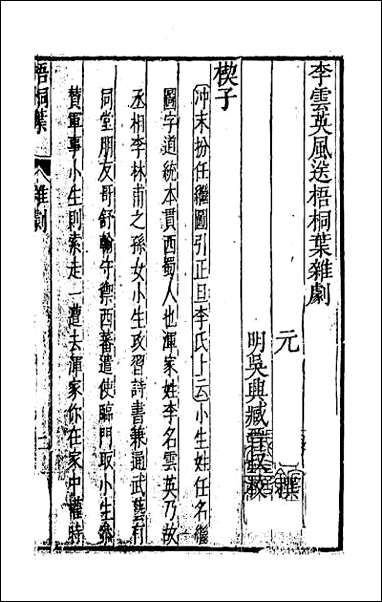 李雲英風送梧桐葉雜劇
元 撰
明吳興臧晉叔校
楔子
沖末扮任繼圖引正旦李氏上云小生姓任名繼
圖字道統本貫西蜀人也渾家姓李名雲英乃故
丞相李林甫之孫女小生攻習詩書兼通武藝有
同堂朋友哥舒翰守禦西蕃遣使臨門取小生參
贊軍事小生則索走一遭去渾家你在家中權時
梧桐葉 雜劇 一